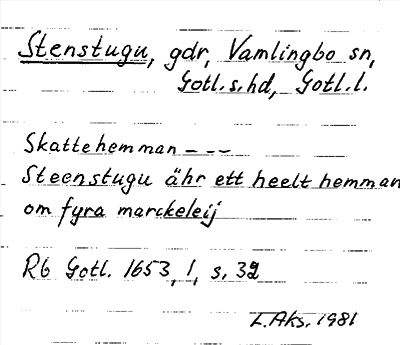 Stenstugu, gdr, Vamlingbo sn,
Gotl.s.hd, Gotl.l.
Skattehemman - - -
Steenstugu ähr ett heelt hemman
om fyra marckeleij
Rb Gotl. 1653, 1, s. 32
L.Aks. 1981